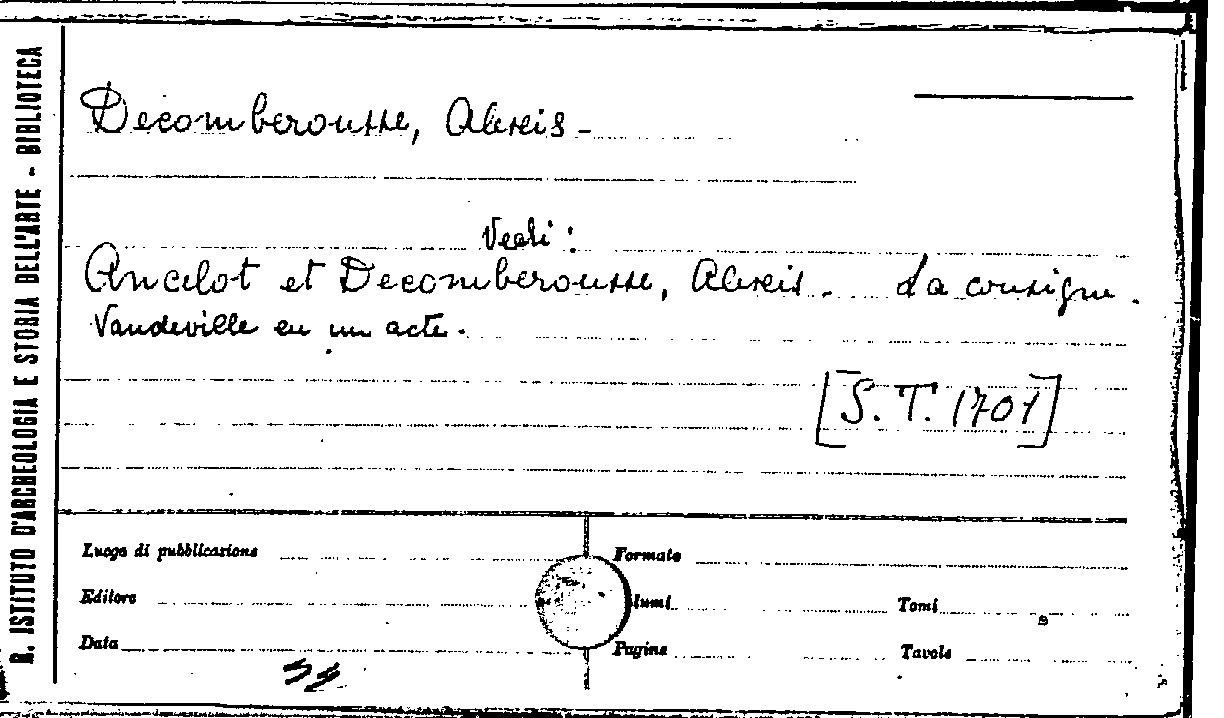 R. ISTITUTO D'ARCHEOLOGIA E STORIA DELL'ARTE - BIBLIOTECA
Decomberousse, Alexis -
Vedi :
Ancelot et Decomberousse, Alexis - La consigne.
Vaudeville en un acte.
[S. T. 1701]
Luogo di pubblicazione
Formato
Editore
lumi
Tomi
Data
Pagine
Tavole